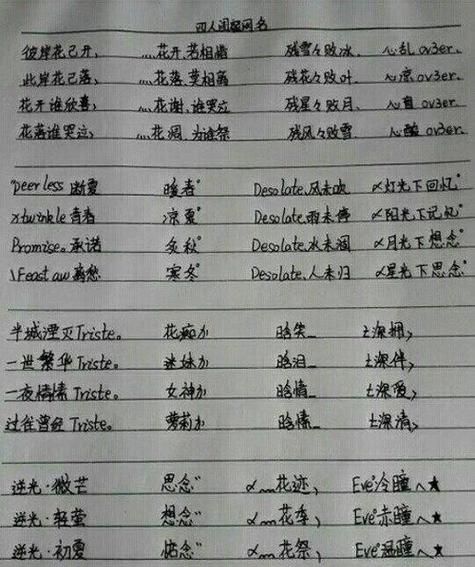 四人闺蜜网名
彼岸花已开, 灬花开,若相惜 残雪々败冰、 心乱 ov3er.
此岸花已落, 灬花落,莫相离 残花々败叶、 心凉 ov3er.
花开谁欣喜, 灬花谢、谁哭泣 残星々败月、 心真 ov3er.
花落谁哭泣, 灬花凋、为谁祭 残风々败雪 心酸 ov3er.
°peerless 断夏 暖春° Desolate、风未吹 〆灯光下回忆°
ㄨtwinkle 青春 凉夏° Desolate、雨未停 〆阳光下记忆°
Promise。承诺 炙秋° Desolate、水未涸 〆月光下想念°
\Feast aw 离愁 寒冬° Desolate、人未归 〆星光下思念°
半城湮灭Triste。 花痴か 晗笑_ ±深拥,
一世繁华Triste。 迷妹か 晗泪_ ±深伴,
一夜情愫Triste。 女神か 晗情_ ±深爱,
过往曾经Triste。 萝莉か 晗愫_ ±深情,
逆光·微芒 思念" 〆灬花迹, Eve°冷瞳ヘ★
逆光·轻萤 想念" 〆灬花季, Eve°赤瞳ヘ★
逆光·初夏 惦念" 〆灬花祭, Eve°温瞳ヘ★